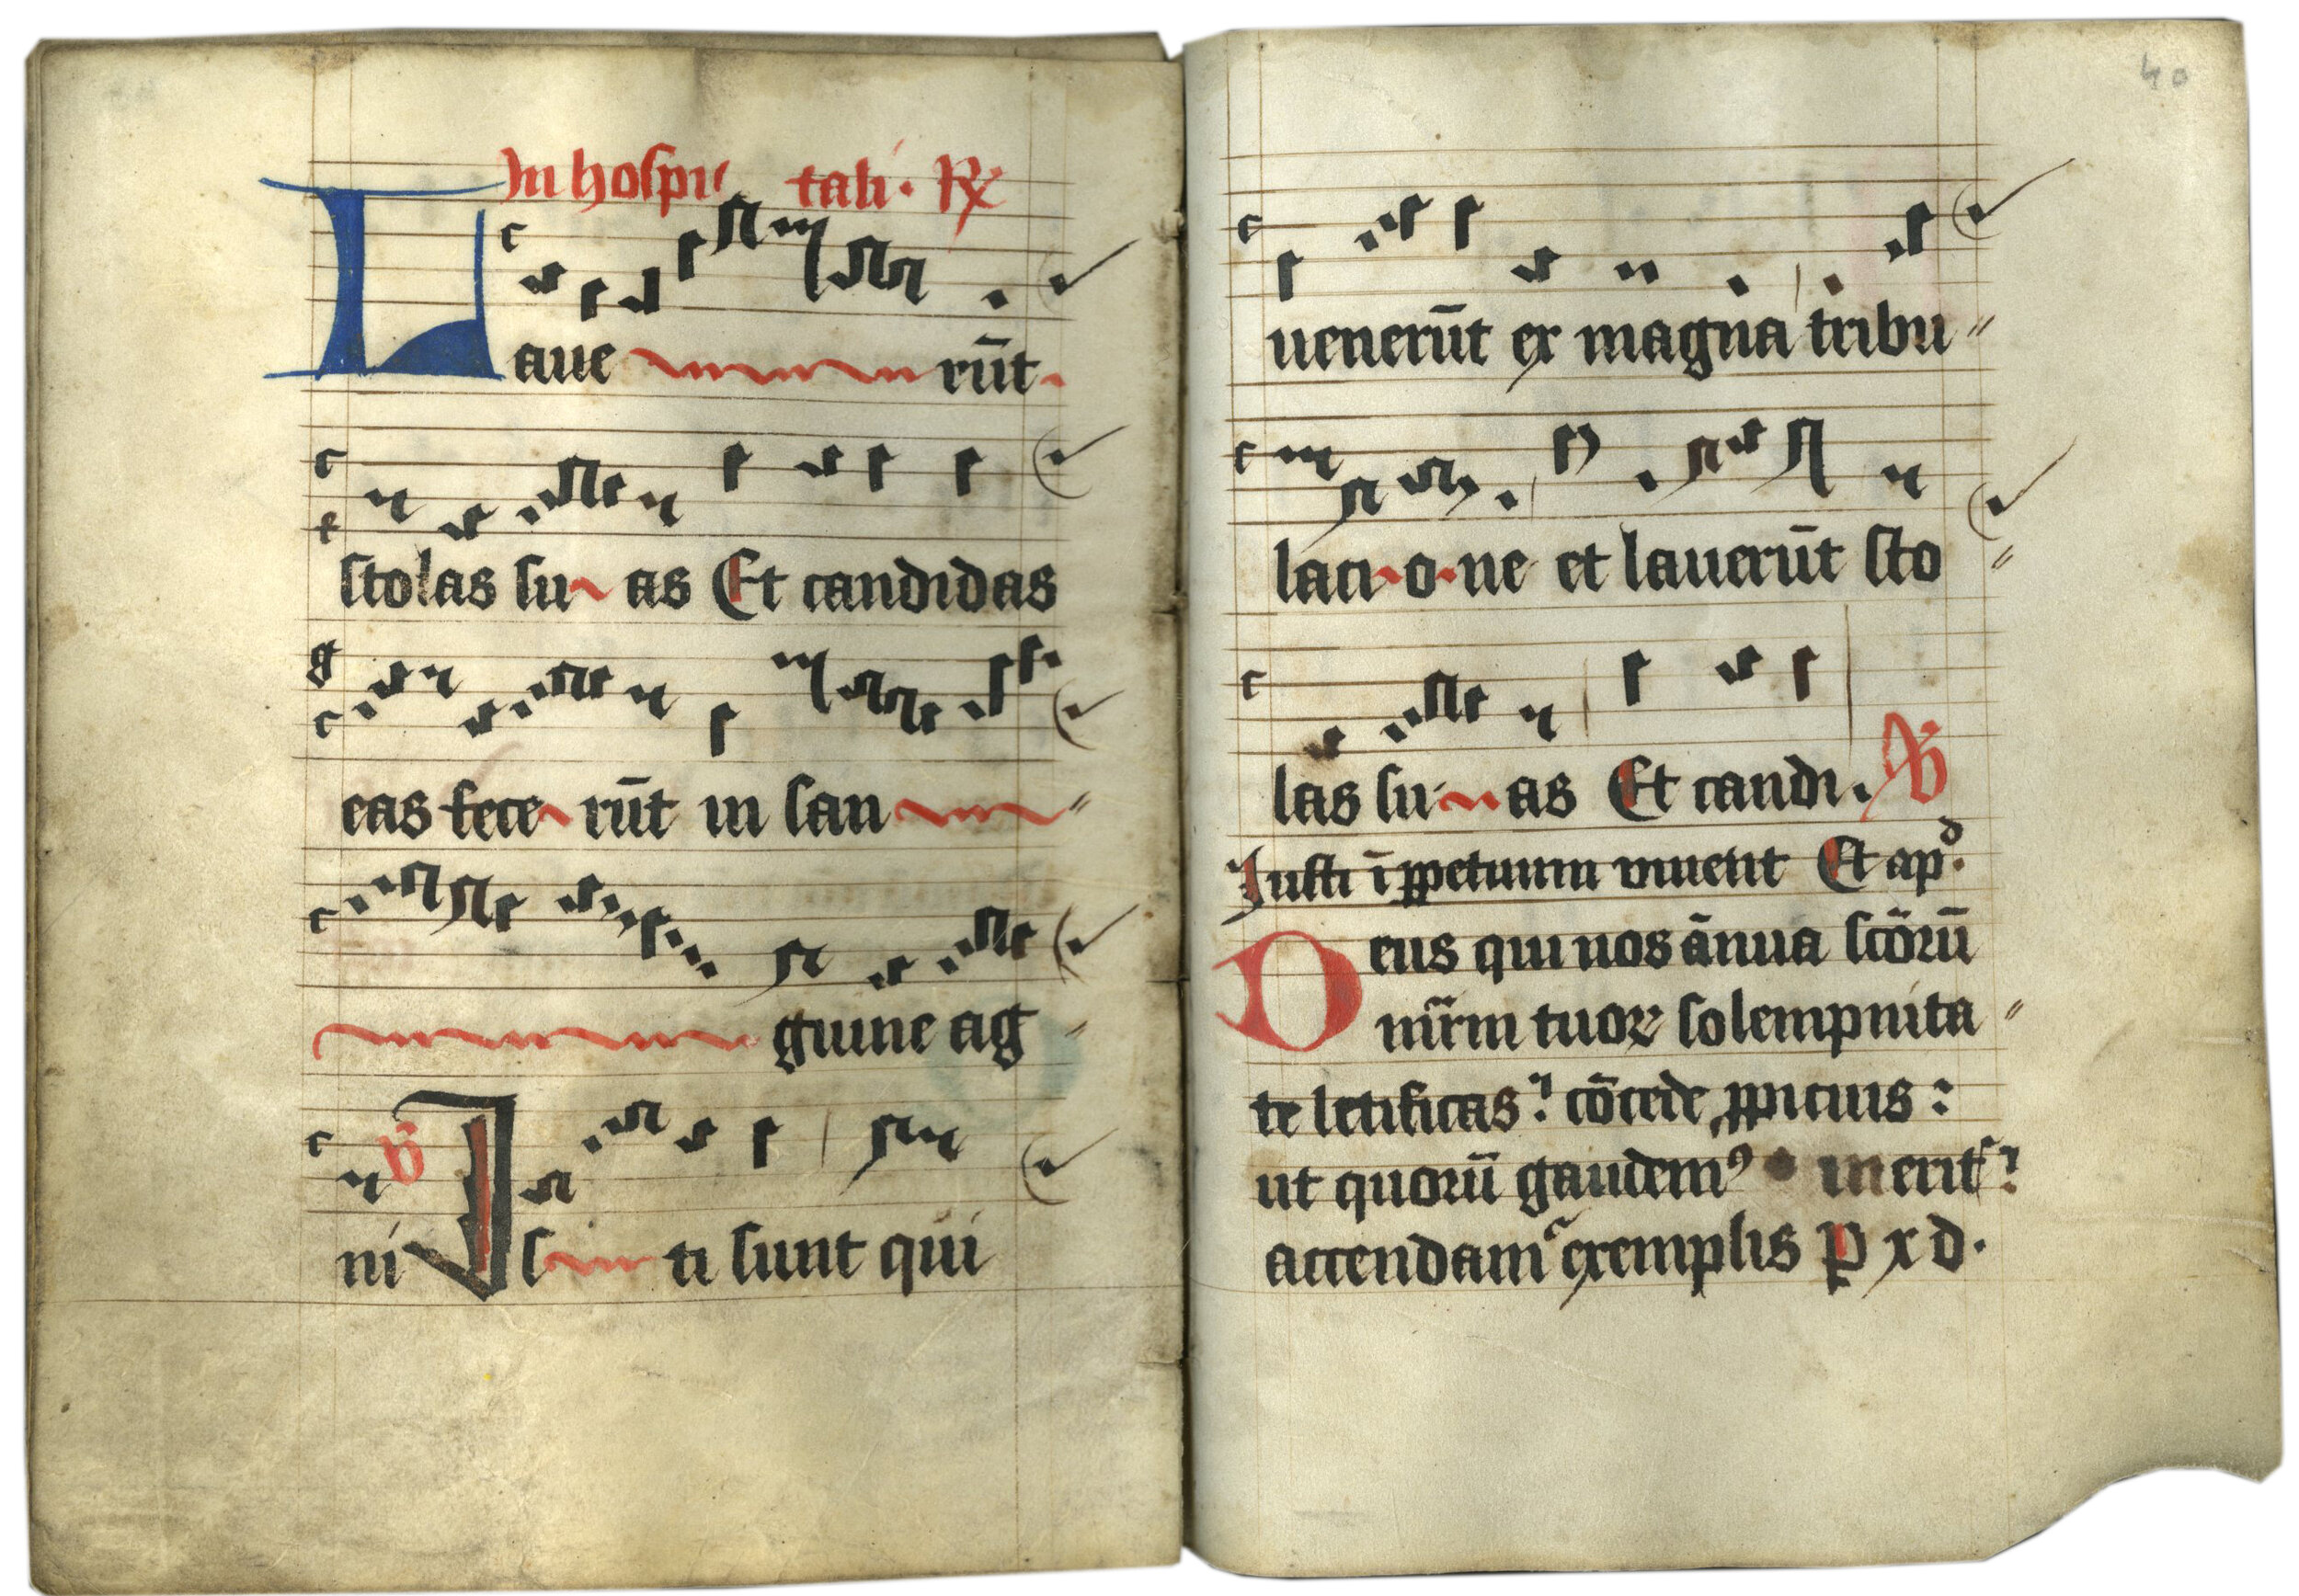 In hospi tali. R̸
Laue rūt.
stolas su as Et candidas
eas fece rūt in san
guine ag
ni V̸ Is ti sunt qui
40
uenerūt ex magna tribu〃
laci o ne et lauerūt sto〃
las su as Et candi. V̸
Iusti ī ꝑpetuum viuent Et apᵈ.
Deus qui nos ānua scōrū
mr̄m tuoꝝ solempnita〃
te letificas? cōcede ꝓpicius:
ut quorū gaudemꝰ merit?
accendamʳ exemplis P x d.